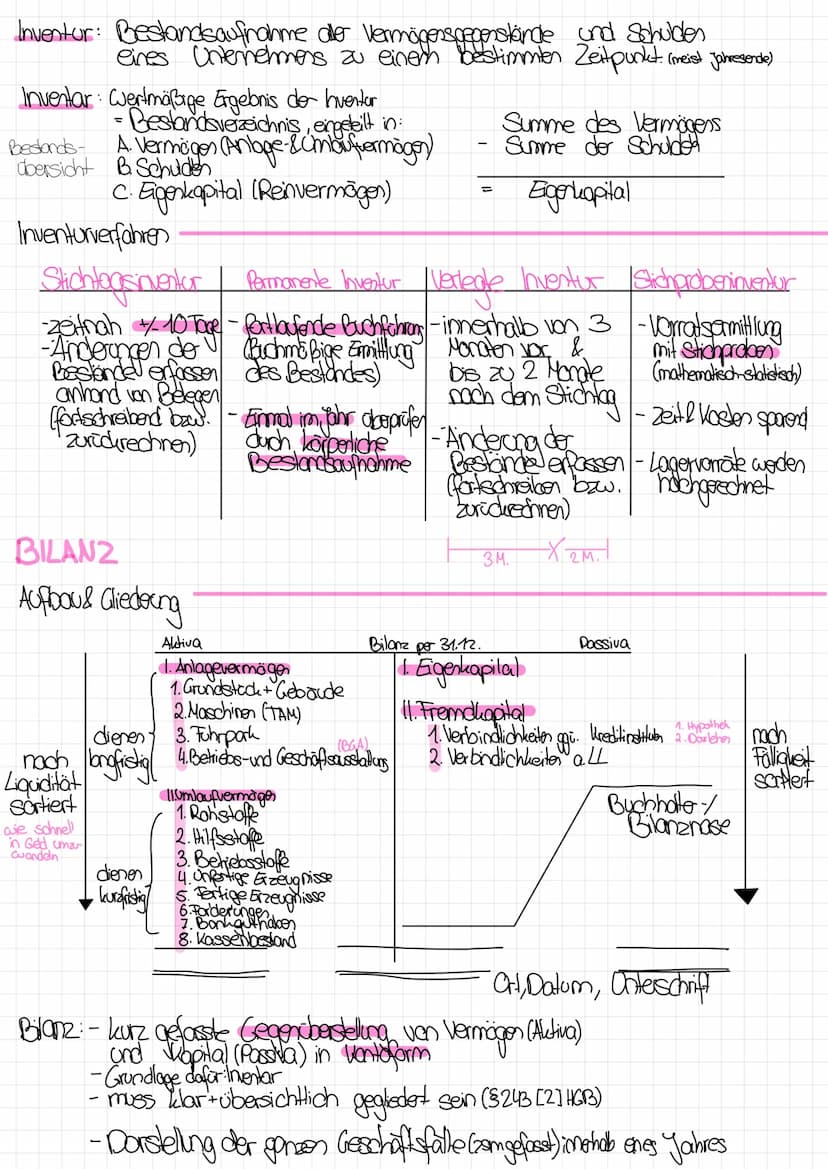 Inventur: Bestandsaufnahme der Vermögensgegenstände und Schulden
eines Unternehmens zu einem bestimmten Zeitpunkt. (meist Jahresende)
Inventar: Wertmäßige Ergebnis der Inventur
= Bestandsverzeichnis, eingeteilt in:
Bestands-
übersicht
A. Vermögen (Anlage- & Umlaufvermögen)
B. Schulden
C. Eigenkapital (Reinvermögen)
Summe des Vermögens
- Summe der Schulden
= Eigenkapital
Inventurverfahren
Stichtagsinventur
-zeitnah +/- 10 Tage
-Änderungen der
Bestände erfassen
anhand von Belegen
(fortschreibend bzw.
zurückrechnen)
Permanente Inventur
- Fortlaufende Buchführung
(Buchmäßige Ermittlung
des Bestandes)
- Einmal im Jahr überprüfen
durch körperliche
Bestandsaufnahme
Verlegte Inventur
-innerhalb von 3
Monaten vor &
bis zu 2 Monate
nach dem Stichtag
-Änderung der
Bestände erfassen
(fortschreiben bzw.
zurückrechnen)
3M. X 2M.
Stichprobeninventur
-Vorratsermittlung
mit Stichproben
(mathematisch-statistisch)
- Zeit & Kosten sparend
- Lagervorräte werden
hochgerechnet
BILANZ
Aufbau & Gliederung
Aktiva Bilanz per 31.12. Passiva
nach
Liquidität
sortiert
wie schnell
in Geld umzu-
wandeln
dienen
langfristig
I. Anlagevermögen
1. Grundstück + Gebäude
2. Maschinen (TAM)
3. Fuhrpark
4. Betriebs- und Geschäftsausstattung (BGA)
dienen
kurzfristig
II. Umlaufvermögen
1. Rohstoffe
2. Hilfsstoffe
3. Betriebsstoffe
4. Unfertige Erzeugnisse
5. Fertige Erzeugnisse
6. Forderungen
7. Bankguthaben
8. Kassenbestand
I. Eigenkapital
II. Fremdkapital
1. Verbindlichkeiten ggü. Kreditinstituten
1. Hypothek
2. Darlehen
2. Verbindlichkeiten a. LL
nach
Fälligkeit
sortiert
Buchhalter-/
Bilanznase
Ort, Datum, Unterschrift
Bilanz: - kurz gefasste Gegenüberstellung von Vermögen (Aktiva)
und Kapital (Passiva) in Kontoform
- Grundlage dafür: Inventar
- muss klar + übersichtlich gegliedert sein (§ 243 [2] HGB)
- Darstellung der ganzen Geschäftsfälle (zsmgefasst) innerhalb eines Jahres